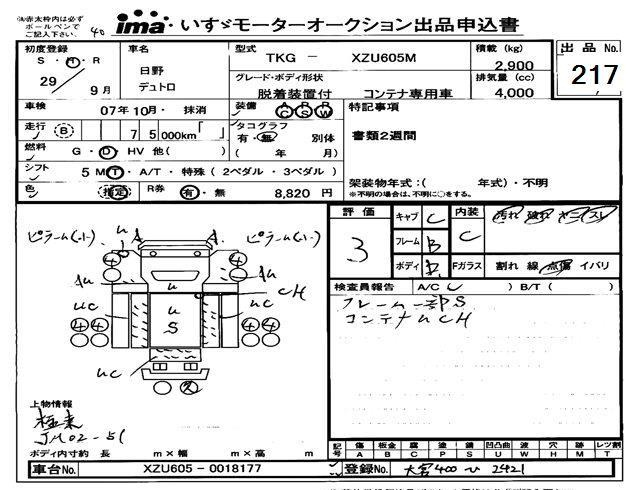 (注)赤太枠内は必ず
ボールペンで
ご記入下さい。
40
ima いすゞモーターオークション出品申込書
初度登録
S・H・R
29 9月
車名
日野
デュトロ
型式
TKG － XZU605M
グレード・ボディ形状
脱着装置付 コンテナ専用車
積載(kg)
2,900
排気量(cc)
4,000
出品No.
217
車検 07年10月・ 抹消
装備 AC PS RW
特記事項
書類2週間
走行 (B) 75000km「 」
タコグラフ
有・無 別体
( 年 月)
燃料 G・D・HV 他( )
シフト 5 MT・A/T・特殊(2ペダル・3ペダル)
架装物年式:( 年式)・不明
※不明の場合は、不明に○をする。
色 (指定) R券 有・無 8,820 円
評価
3
キャブ C
フレーム B
ボディ D
内装
C
Fガラス
汚れ 破れ ヤニ スレ
割れ 線 点傷 イバリ
検査員報告 A/C( ) B/T( )
フレーム一部S
コンテナUCH
ピラーU(小)
U
A
A
ピラーU(小)
4
4
AU
U
AU
UC
CH
UC
U
S
4 4
4 4
UC
2
上物情報
極東
JM02-51
ボディ内寸約 長 m×幅 m×高 m
記号 傷A 板金B 腐C 塗P 錆S 凹凸曲U 波W 穴H 跡M レツ割T
車台No. XZU605－0018177
登録No. 大宮400 2421